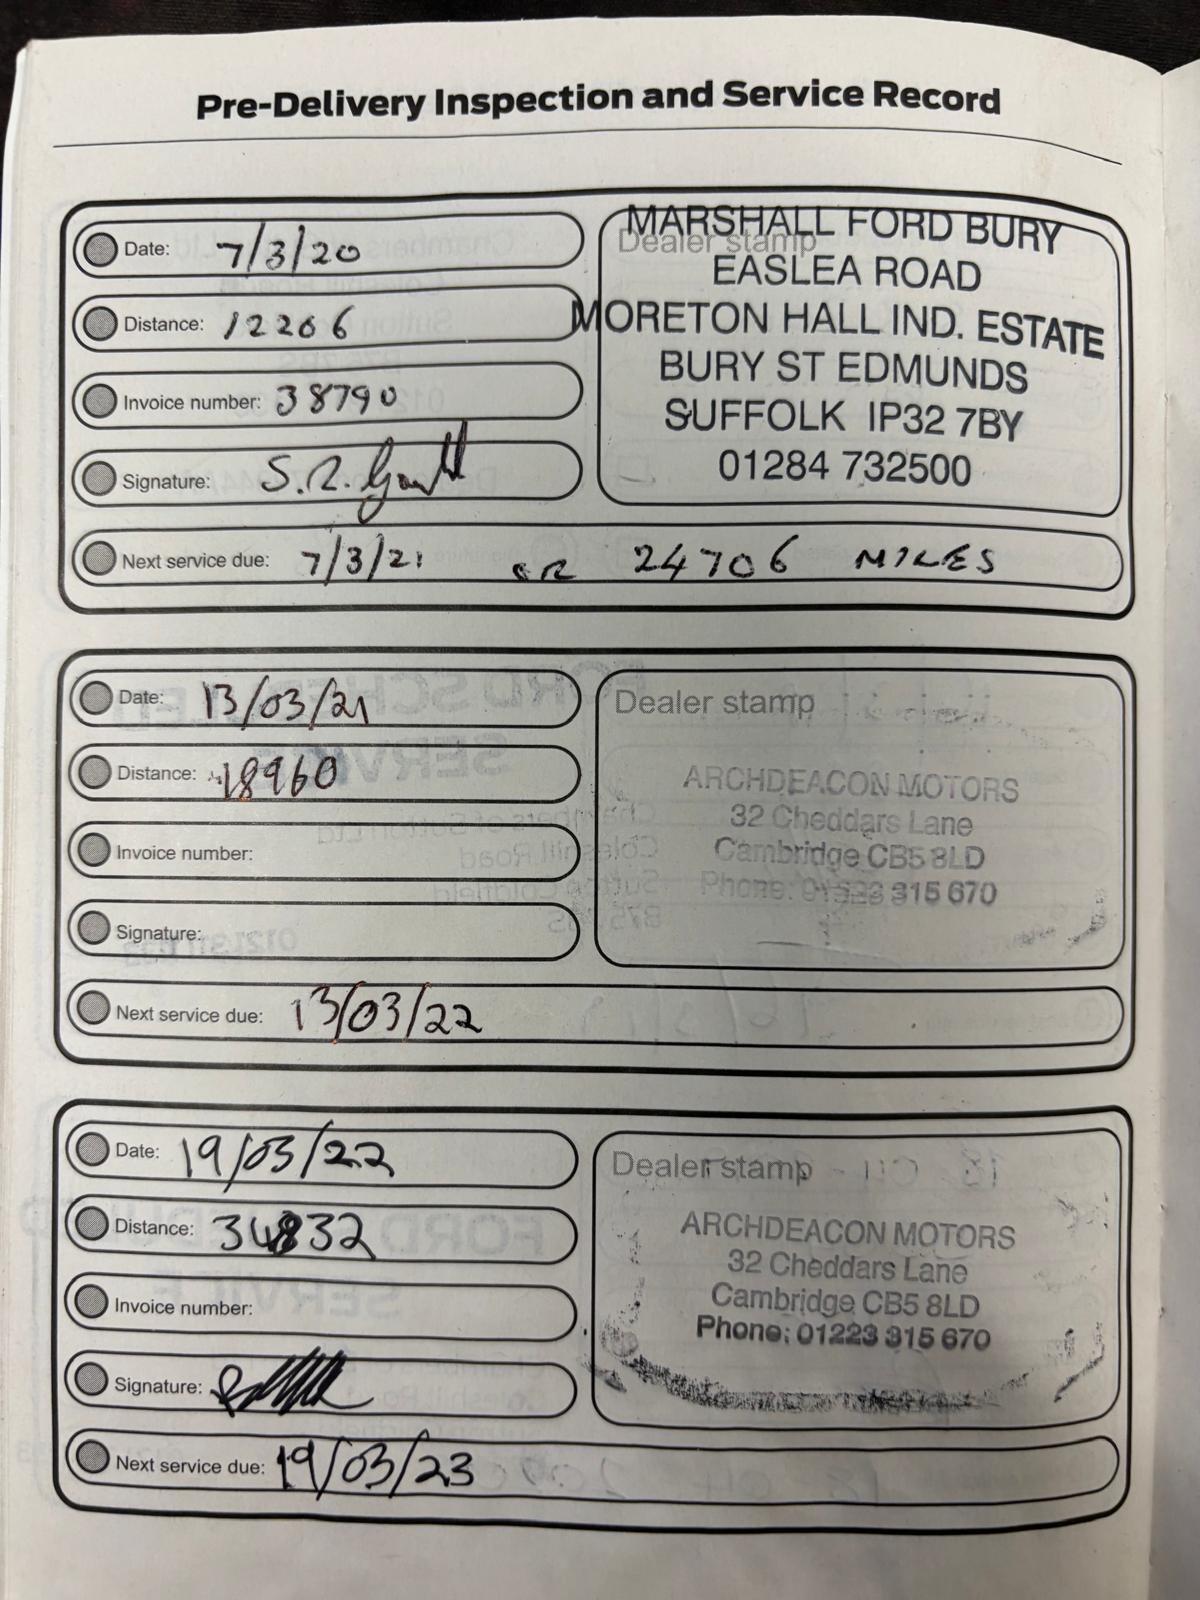 Pre-Delivery Inspection and Service Record
Date: 7/3/20
Distance: 12206
Invoice number: 38790
Signature: S.R.
Next service due: 7/3/21 OR 24706 MILES
Dealer stamp
MARSHALL FORD BURY
EASLEA ROAD
MORETON HALL IND. ESTATE
BURY ST EDMUNDS
SUFFOLK IP32 7BY
01284 732500
Date: 13/03/21
Distance: 18960
Invoice number:
Signature:
Next service due: 13/03/22
Dealer stamp
ARCHDEACON MOTORS
32 Cheddars Lane
Cambridge CB5 8LD
Phone: 01223 315 670
Date: 19/03/22
Distance: 34832
Invoice number:
Signature:
Next service due: 19/03/23
Dealer stamp
ARCHDEACON MOTORS
32 Cheddars Lane
Cambridge CB5 8LD
Phone: 01223 315 670